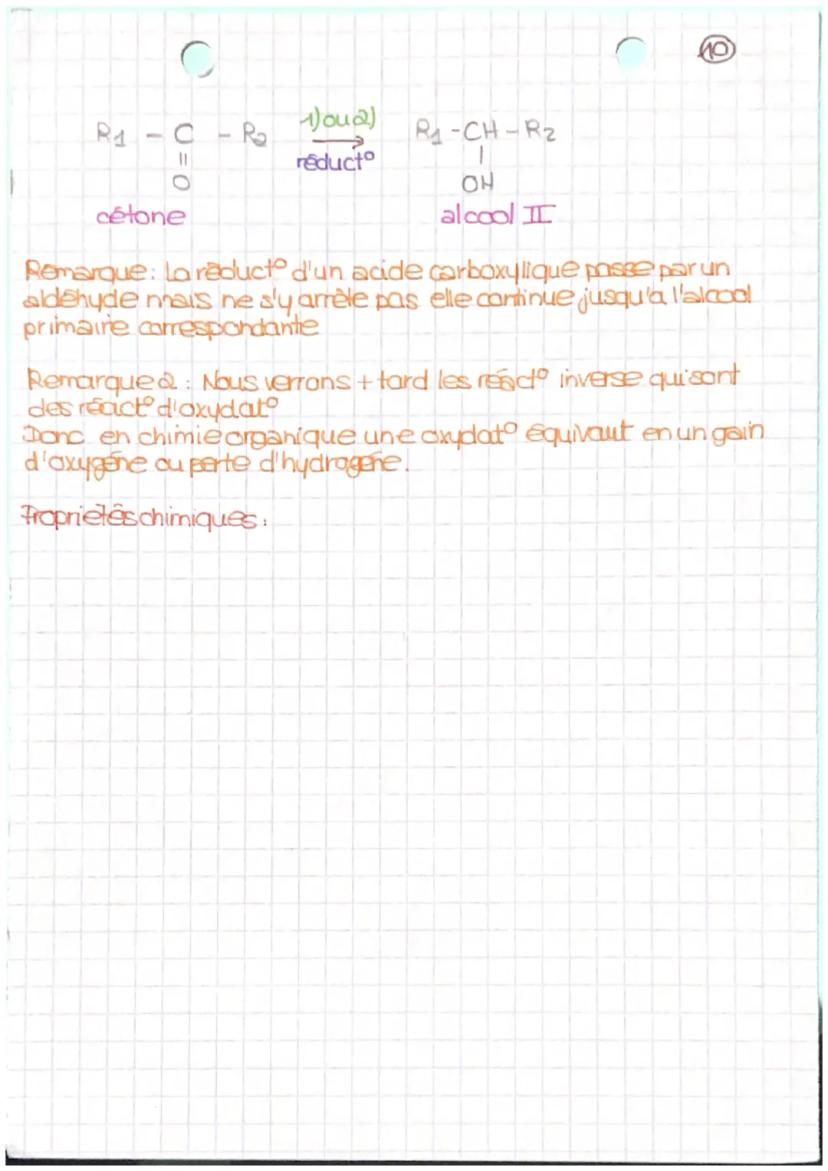 10
R1 - C - R2 1) ou 2) R1 - CH - R2
|| réduct° |
O OH
cétone alcool II
Remarque : La réduct° d'un acide carboxylique passe par un
aldéhyde mais ne s'y arrête pas elle continue jusqu'à l'alcool
primaire correspondante
Remarque 2 : Nous verrons + tard les réact° inverse qui sont
des réact° d'oxydat°
Donc en chimie organique une oxydat° équivaut en un gain
d'oxygène ou perte d'hydrogène.
Propriétés chimiques :